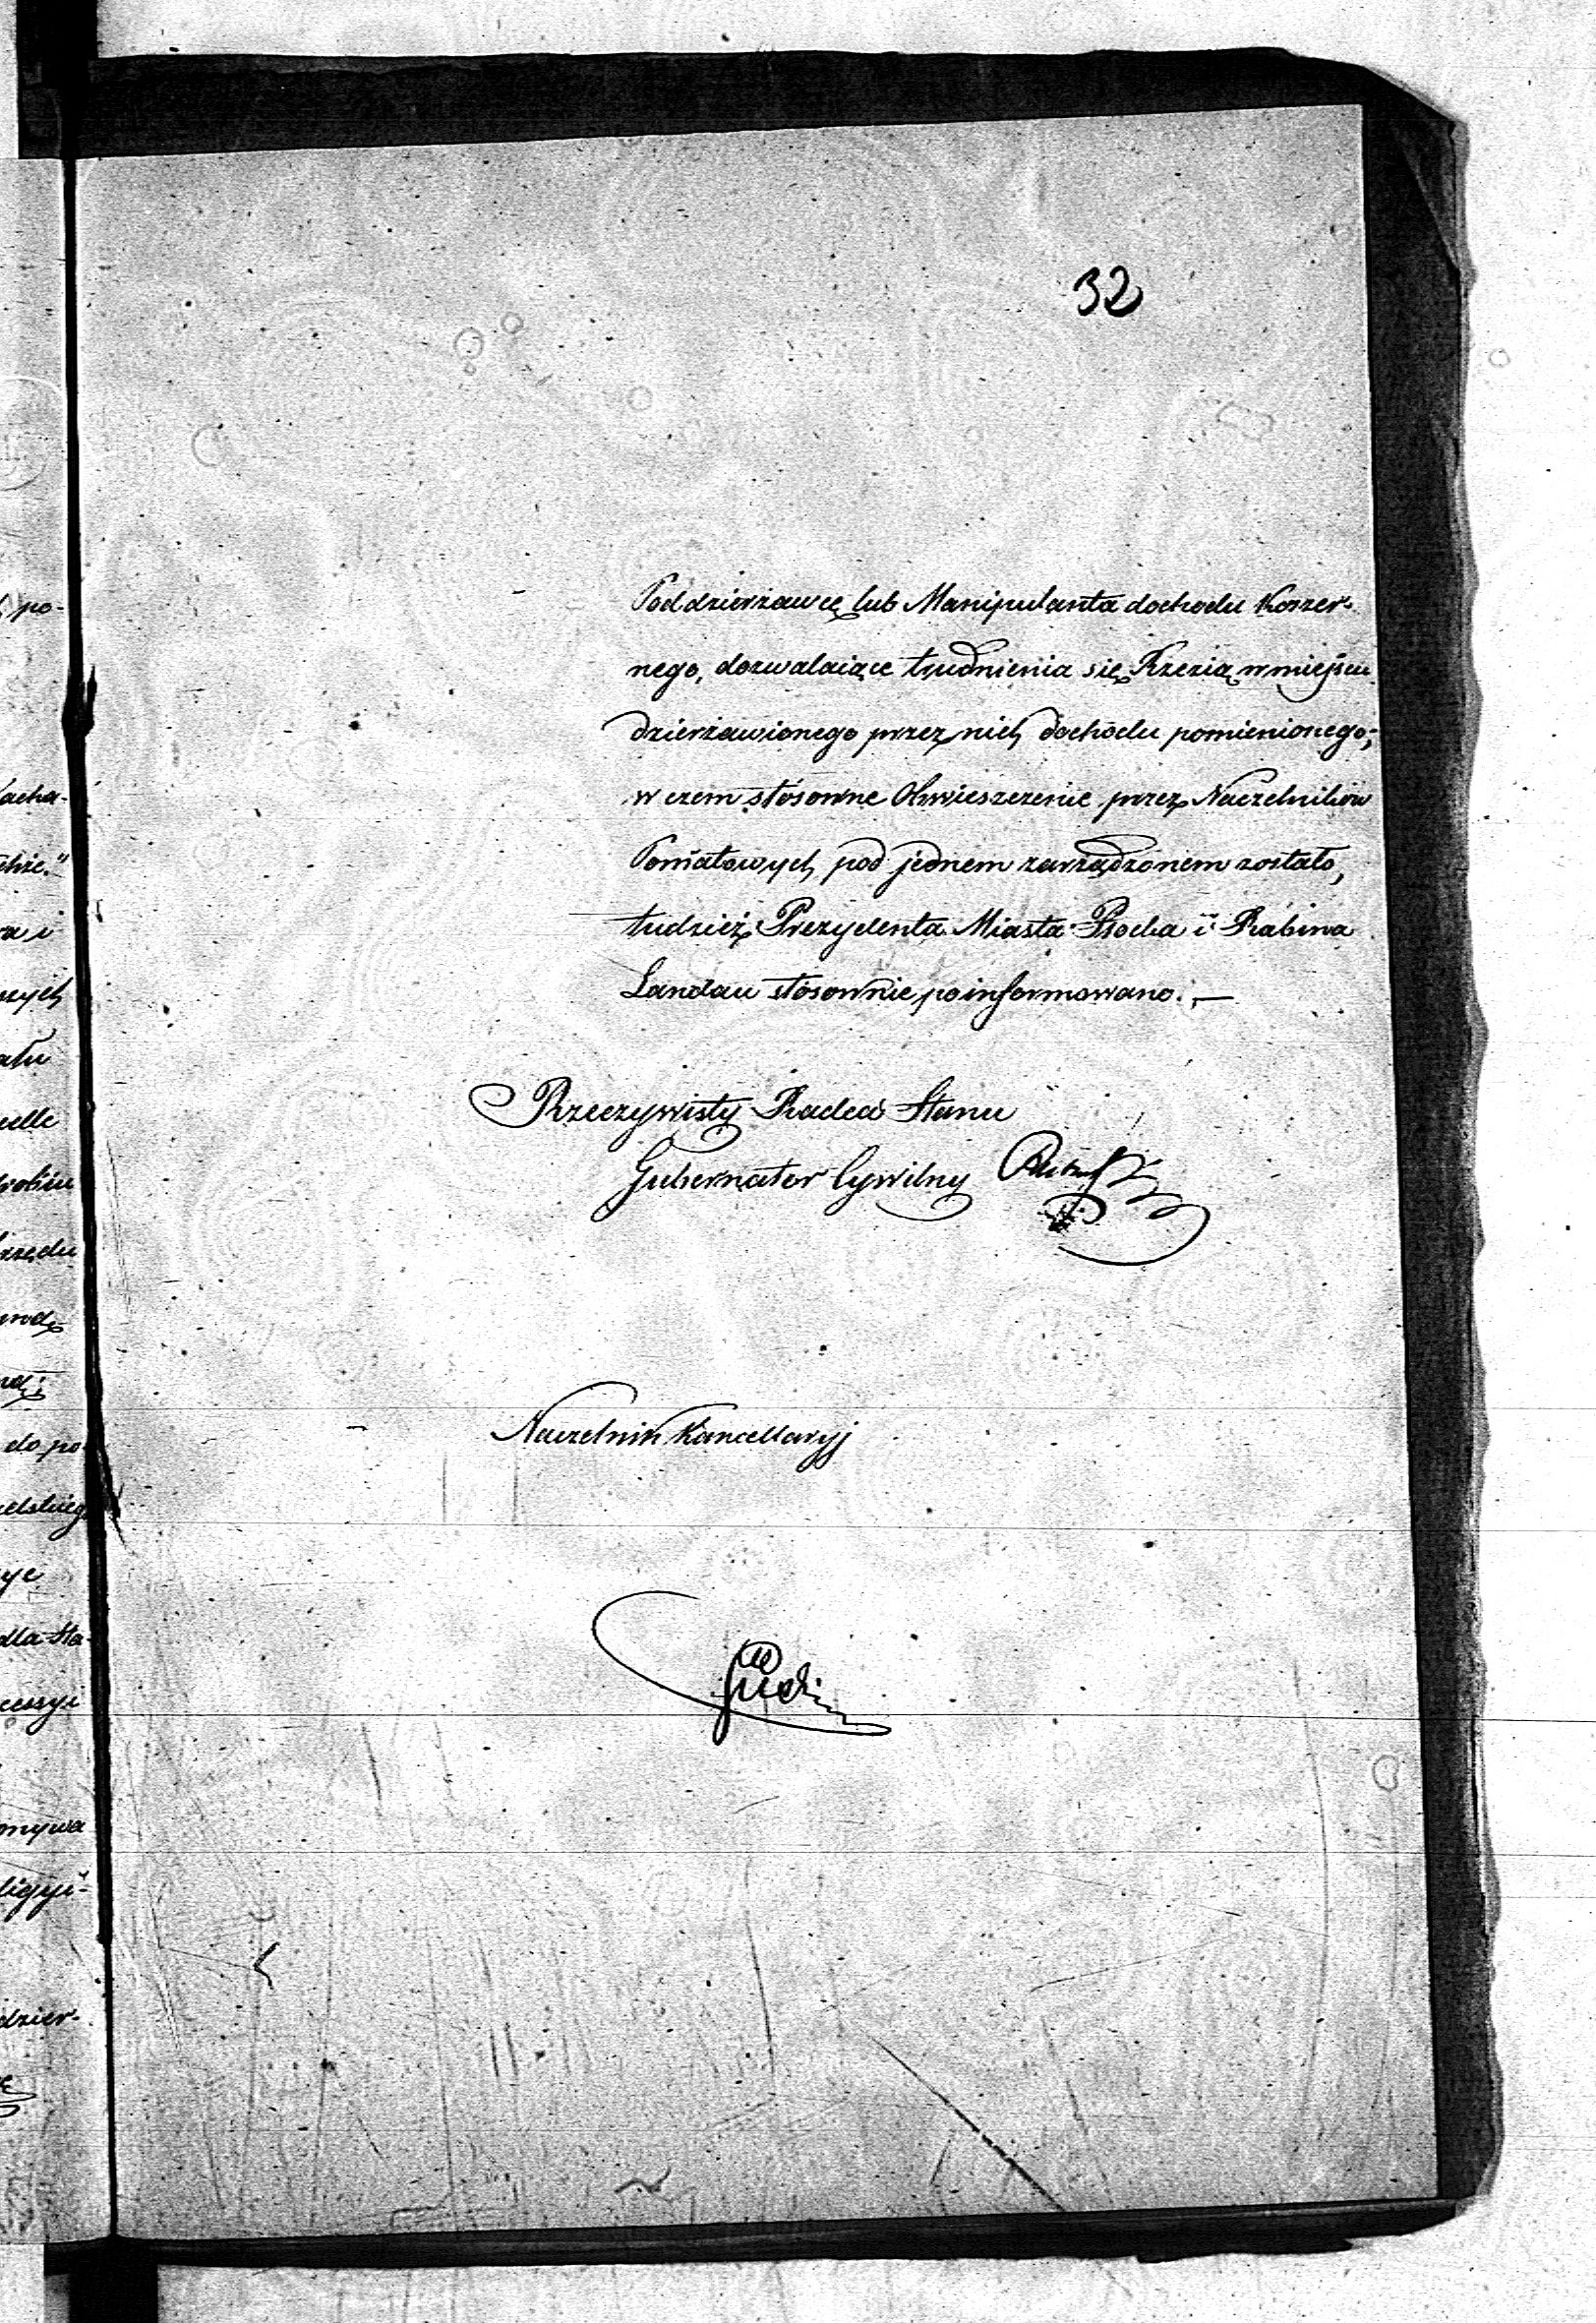 32
Poddzierżawcę lub Manipulanta dochodu Koszer-
nego, dozwalaiące trudnienia się Rzezią w miejscu
dzierżawionego przez nich dochodu pomienionego;
w czem stósowne Obwieszczenie przez Naczelników
Powiatowych pod jednem zarządzonem zostało,
tudzież Prezydenta Miasta Płocka i Rabina
Landau stósownie poinformowano. —
Rzeczywisty Radca Stanu
Gubernator Cywilny
Naczelnik Kancellaryj
po-
acha-
wszych
elle
rzędu
do po-
dla Sta-
ligyi-
dzier-